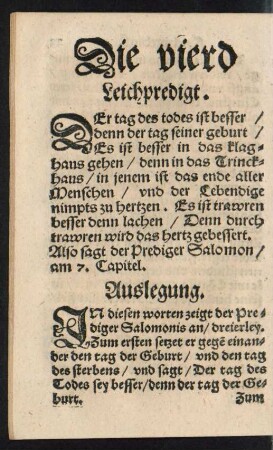 Die vierd
Leichpredigt.
DEr tag des todes ist besser /
denn der tag seiner geburt /
Es ist besser in das klag-
haus gehen / denn in das Trinck-
haus / in jenem ist das ende aller
Menschen / vnd der Lebendige
nimpts zu hertzen. Es ist trawren
besser denn lachen / Denn durch
trawren wird das hertz gebessert.
Also sagt der Prediger Salomon /
am 7. Capitel.
Auslegung.
IN diesen worten zeigt der Pre-
diger Salomonis an / dreierley.
Zum ersten setzet er gegē einan-
der den tag der Geburt / vnd den tag
des sterbens / vnd sagt / Der tag des
Todes sey besser / denn der tag der Ge-
burt. Zum